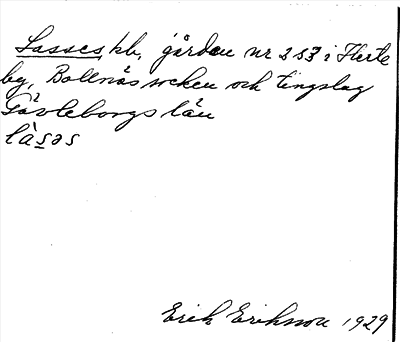 Lasses, kb, gården nr 353 i Herte
by, Bollnäs socken och tingslag
Gävleborgs län
làsəs
Erik Eriksson 1929